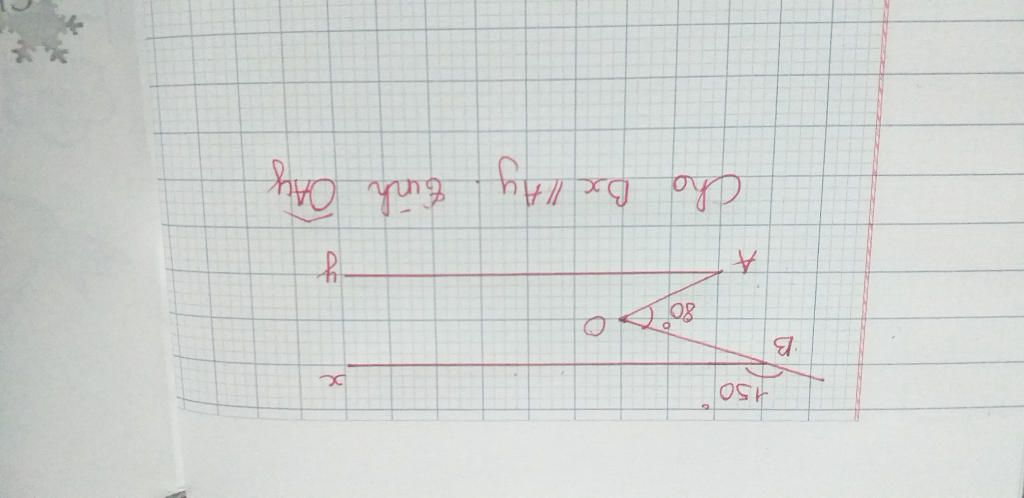 150°
x
B
80°
O
A
y
Cho Bx // Ay. Tính OAy